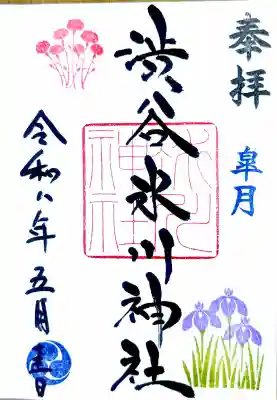 奉拝
皐月
渋谷氷川神社
令和八年五月吉日